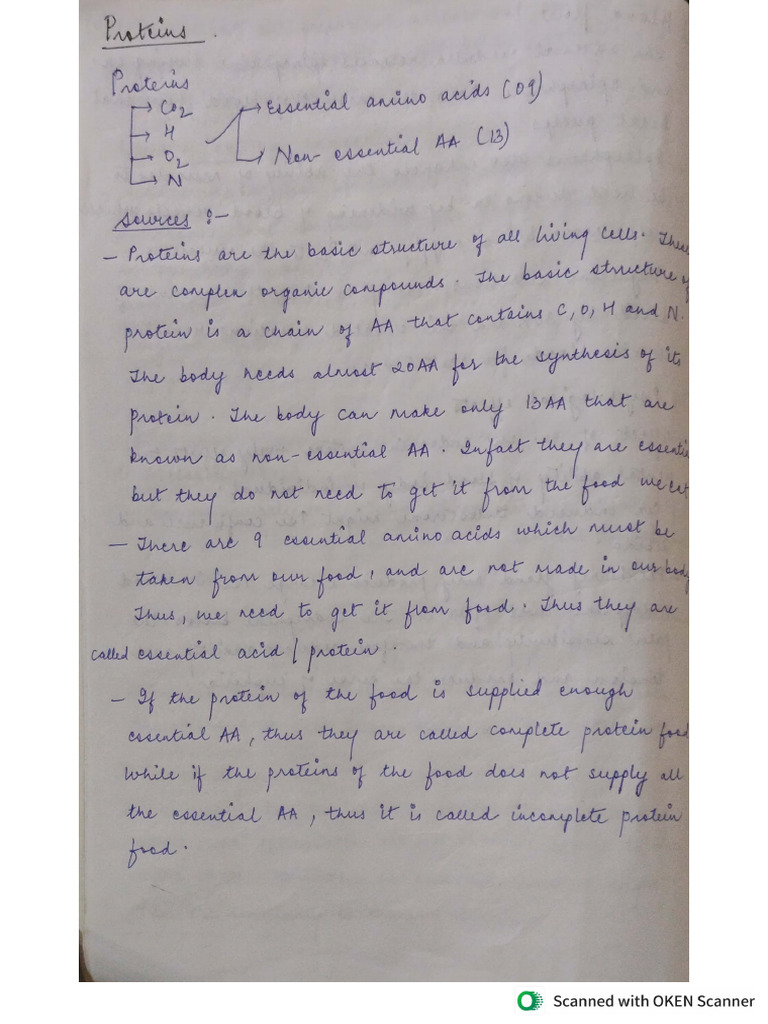 Proteins.
Proteins
→ CO2
→ H
→ O2
→ N
→ Essential amino acids (09)
→ Non-essential AA (13)
Sources :-
- Proteins are the basic structure of all living cells.
are complex organic compounds. The basic structure of
protein is a chain of AA that contains C, O, H and N.
The body needs almost 20AA for the synthesis of its
protein. The body can make only 13AA that are
known as non-essential AA. Infact they are essential
but they do not need to get it from the food we eat
- There are 9 essential amino acids which must be
taken from our food, and are not made in our body
Thus, we need to get it from food. Thus they are
called essential acid / protein.
- If the protein of the food is supplied enough
essential AA, thus they are called complete protein food
While if the proteins of the food does not supply all
the essential AA, thus it is called incomplete protein
food.
Scanned with OKEN Scanner